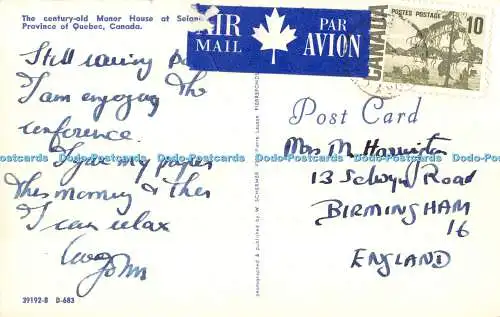 The century-old Manor House at
Province of Quebec, Canada.
AIR MAIL
PAR AVION
POSTES POSTAGE
10
CANADA
Still raining
I am enjoying the
conference.
I give my paper
this morning & then
I can relax
Love
John
39192-B D-683
photographed & published by W. SCHERMER
PIERREFONDS
Post Card
Mrs M. Harrington
13 Selwyn Road
BIRMINGHAM
16
ENGLAND
Dodo-Postcards Dodo-Postcards Dodo-Postcards Dodo-Postcards Dodo-Postcards Dodo-Postcards